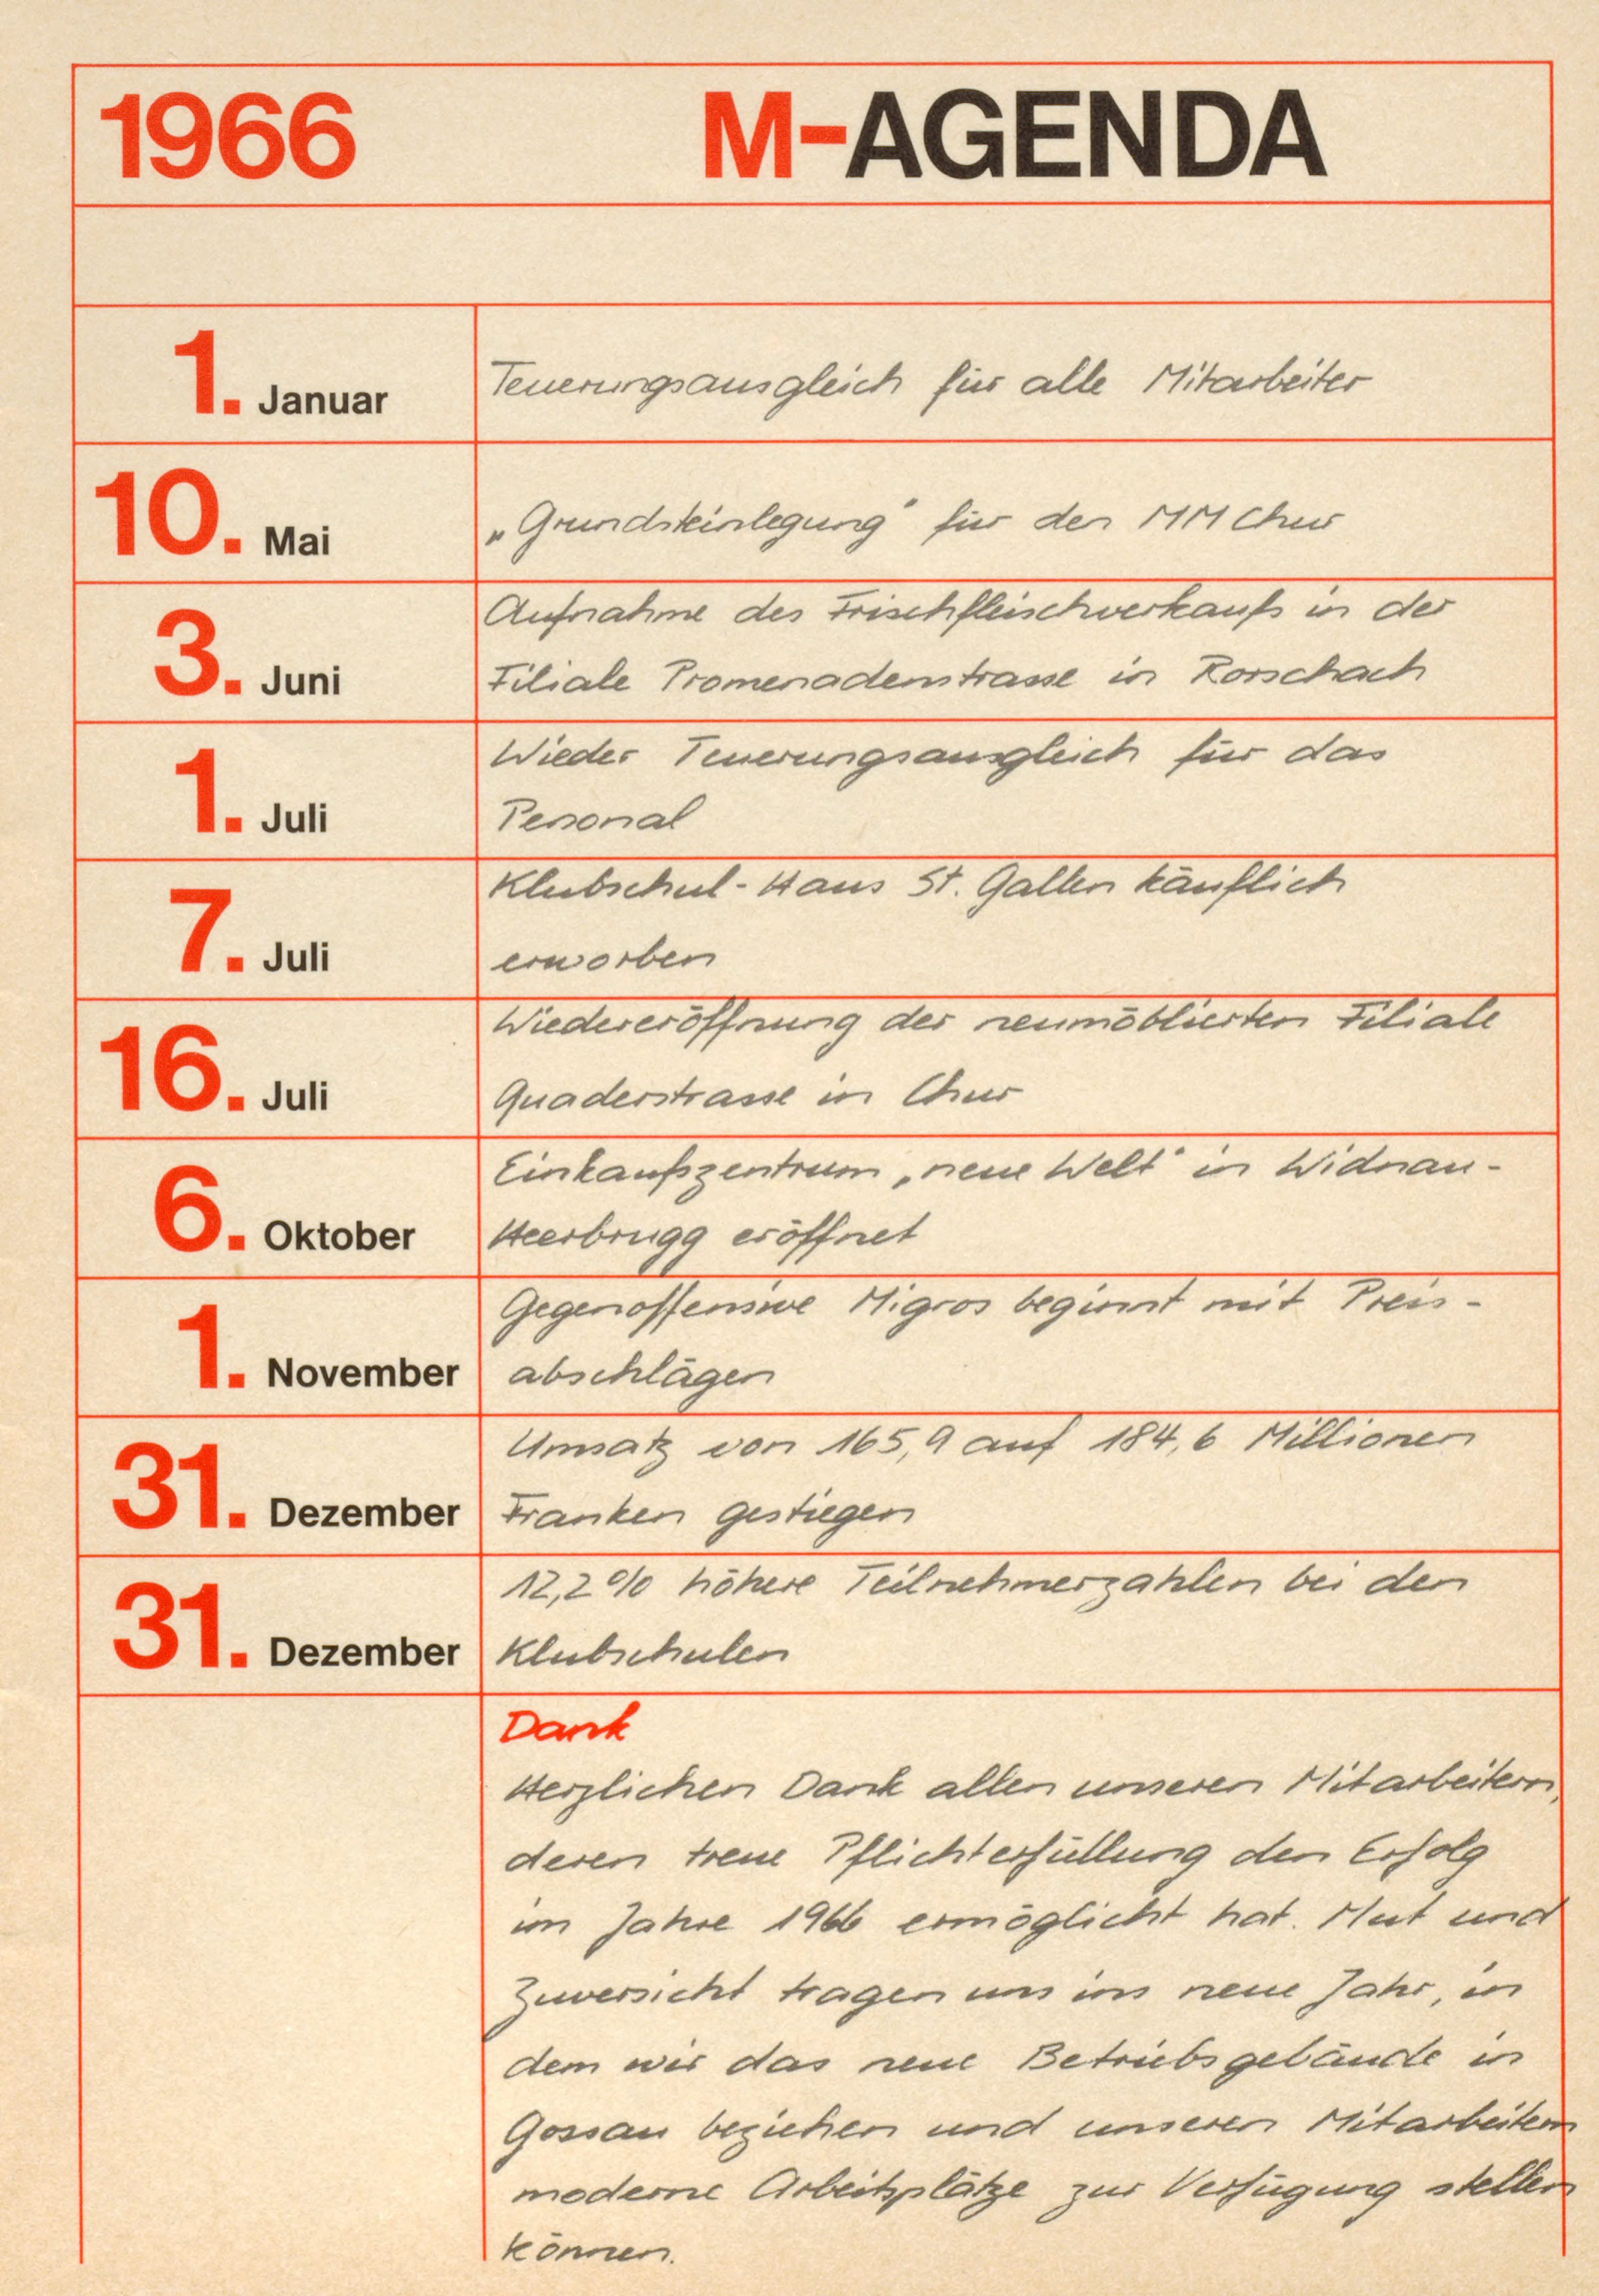 1966 M-AGENDA
1. Januar Teuerungsausgleich für alle Mitarbeiter
10. Mai „Grundsteinlegung" für den MM Chur
3. Juni Aufnahme des Frischfleischverkaufs in der
Filiale Promenadenstrasse in Rorschach
1. Juli Wieder Teuerungsausgleich für das
Personal
7. Juli Klubschul-Haus St. Gallen käuflich
erworben
16. Juli Wiedereröffnung der neumöblierten Filiale
Quaderstrasse in Chur
6. Oktober Einkaufszentrum „neue Welt" in Widnau-
Heerbrugg eröffnet
1. November Gegenoffensive Migros beginnt mit Preis-
abschlägen
31. Dezember Umsatz von 165,9 auf 184,6 Millionen
Franken gestiegen
31. Dezember 12,2% höhere Teilnehmerzahlen bei den
Klubschulen
Dank
Herzlichen Dank allen unseren Mitarbeitern,
deren treue Pflichterfüllung den Erfolg
im Jahre 1966 ermöglicht hat. Mut und
Zuversicht tragen uns ins neue Jahr, in
dem wir das neue Betriebsgebäude in
Gossau beziehen und unseren Mitarbeitern
moderne Arbeitsplätze zur Verfügung stellen
können.